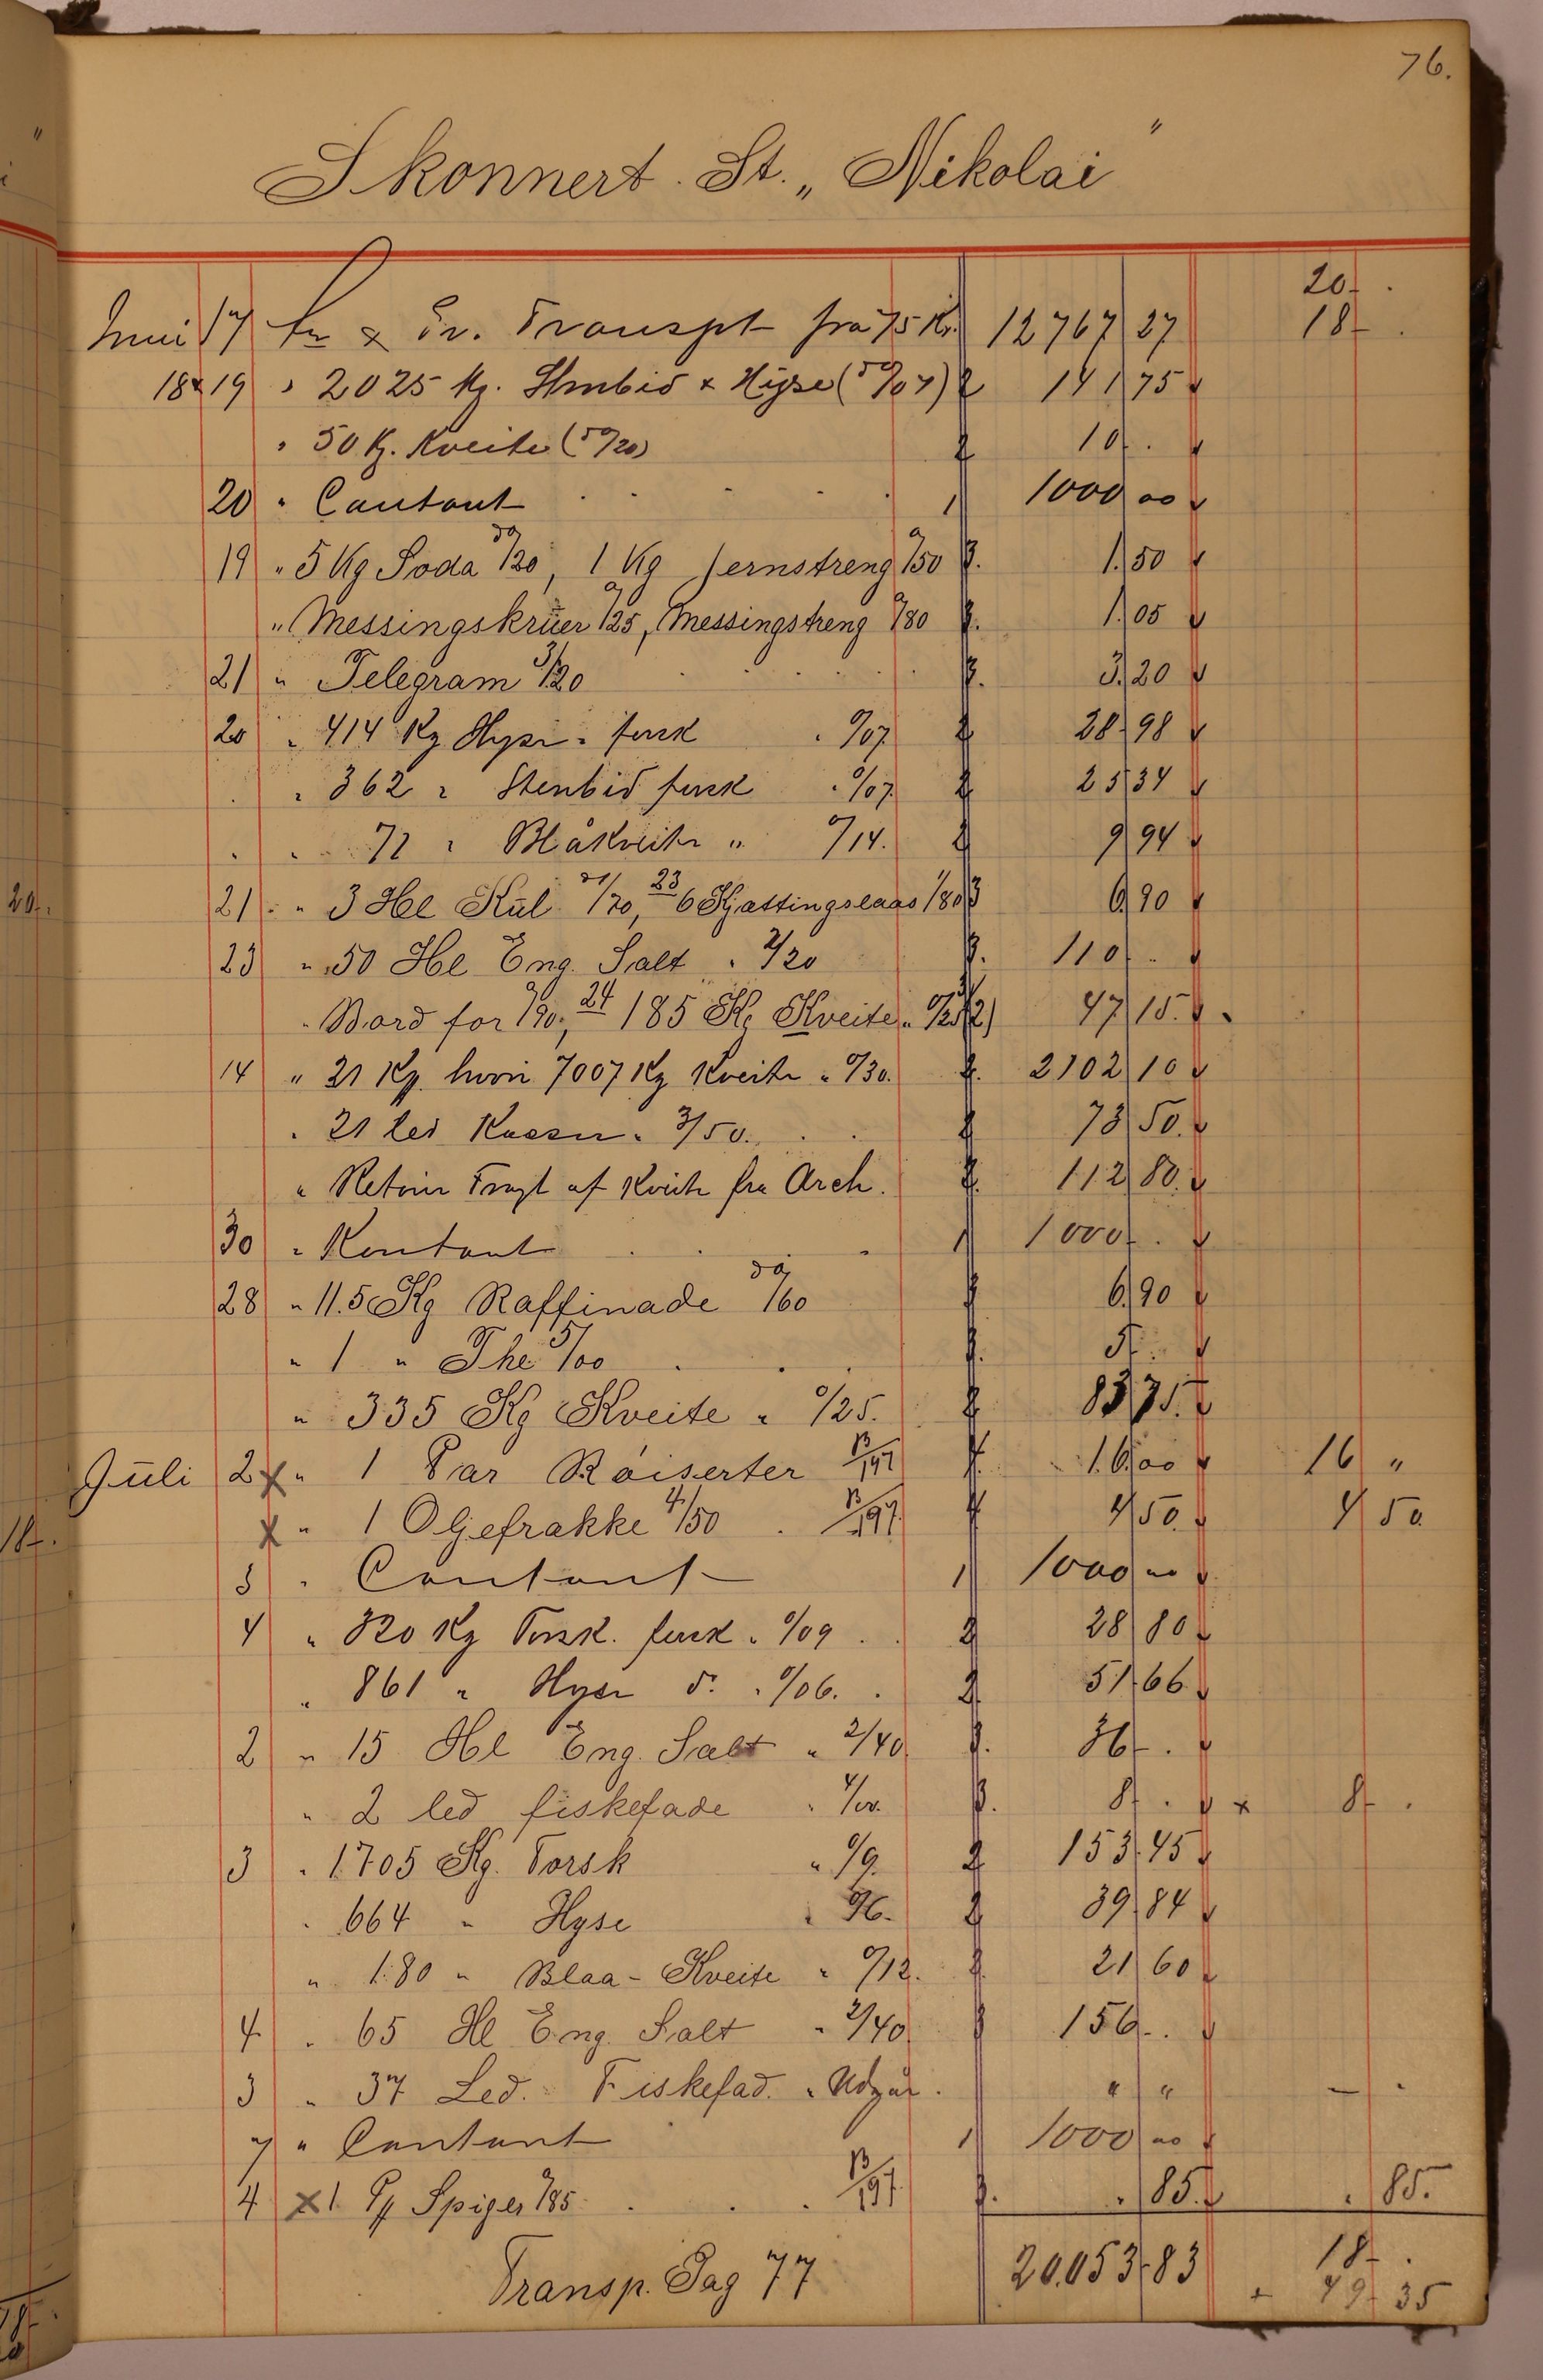 76.
Skonnert. St. „Nikolai"
20 - .
Juni 17 Transpt fra 75 Kr. 12767 27 18 - .
18 & 19 " 2025 Kg. Stenbid & Hyse (à 0/07) 141 75
" 50 Kg. Kveite (à 0/20) 10 - .
20 " Contant 1000 00
19 " 5 Kg Soda à 0/20, 1 Kg Jernstreng 0/50 1.50
" Messingskruer 0/25, Messingstreng 0/80 1.05
21 " Telegram 3/20 3.20
20 " 414 Kg Hyse fersk " 0/07. 28 98
" 362 " Stenbid fersk " 0/07. 25 34
" 71 " Blåkveite " 0/14. 9 94
21 " 3 Hl Kul à 1/70, 23 6 Kjættingslaas 1/80 6.90
23 " 50 Hl Eng. Salt " 2/20 110 - .
" Bord for 0/90., 24 185 Kg Kveite " 0/25 47 15.
14 " 21 Kg. 7007 Kg Kveite " 0/30. 2102 10
" 21 led Kasser " 3/50. 73 50.
" Retour Fragt af Kveite fra Arch. 112 80.
30 " Kontant 1000 - .
28 " 11.5 Kg Raffinade à 0/60 6.90
" 1 " The 5/00 5 - .
" 335 Kg Kveite " 0/25. 83 75.
Juli 2 x " 1 Par B/197 16.00 16 "
x " 1 Oljefrakke 4/50 B/197. 4 50. 4 50.
3 " Contant 1000 00
4 " 320 Kg Torsk. fersk " 0/09 28 80
" 861 " Hyse do. " 0/06. 51 66
2 " 15 Hl Eng. Salt " 2/40 36 - .
" 2 led fiskefade " 4/00. 8 - . x 8 - .
3 " 1705 Kg. Torsk " 0/9. 153.45
" 664 " Hyse " 0/6. 39 84
" 180 " Blaa-Kveite " 0/12. 21 60
4 " 65 Hl Eng. Salt " 2/40 156 - .
3 " 37 Led. Fiskefad. " Udgår. " " - .
7 " Contant 1000 00
4 x 1 Pk Spiger 0/85 B/197. . 85. . 85.
Transp. Pag 77 20.053 83 18 - .
+ 49 - 35